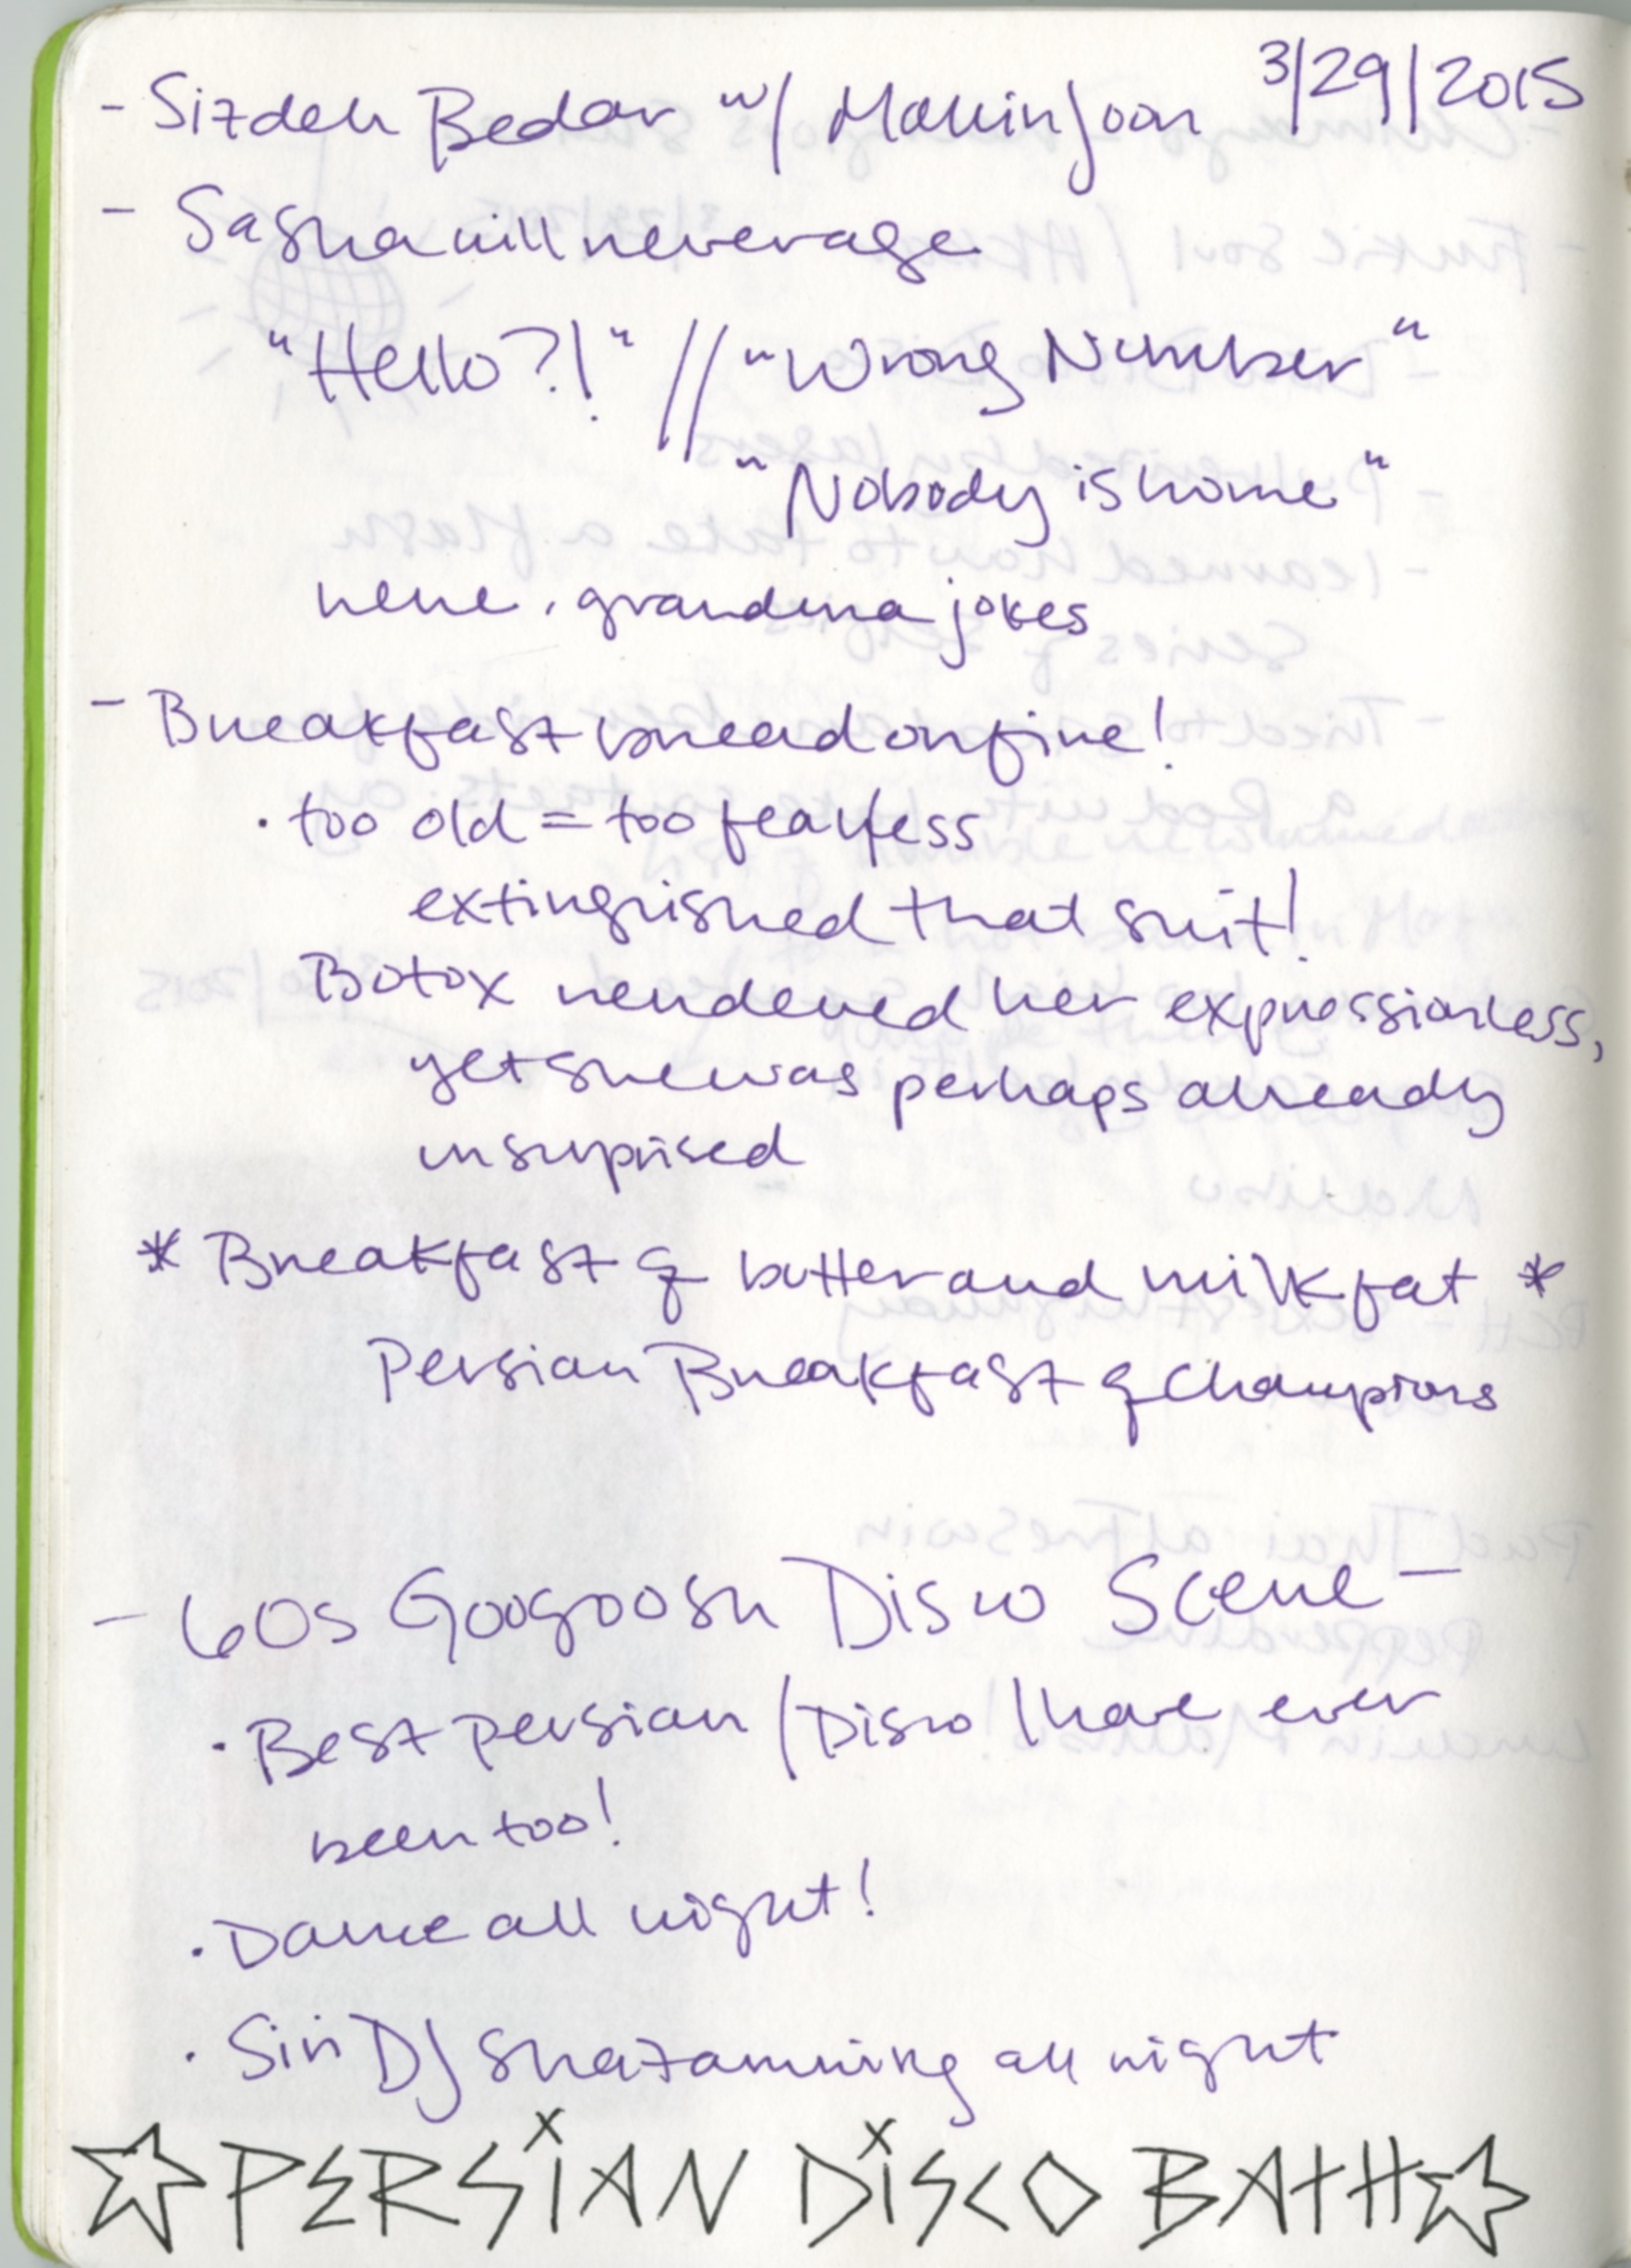 3/29/2015
- Sizdeh Bedar w/ MahinJoon
- Sasha will never age
"Hello?!" // "Wrong Number"
"Nobody is home"
grandma jokes
- Breakfast bread on fire!
· too old = too fearless
extinguished that shit!
Botox rendered her expressionless,
yet she was perhaps already
unsurprised
* Breakfast of butter and milk fat *
Persian Breakfast of Champions
- 60s Googoosh Disco Scene -
· Best Persian / Disco I have ever
been too!
· Dance all night!
· Siri DJ Shazamming all night
☆ PERSIAN DISCO BATH ☆